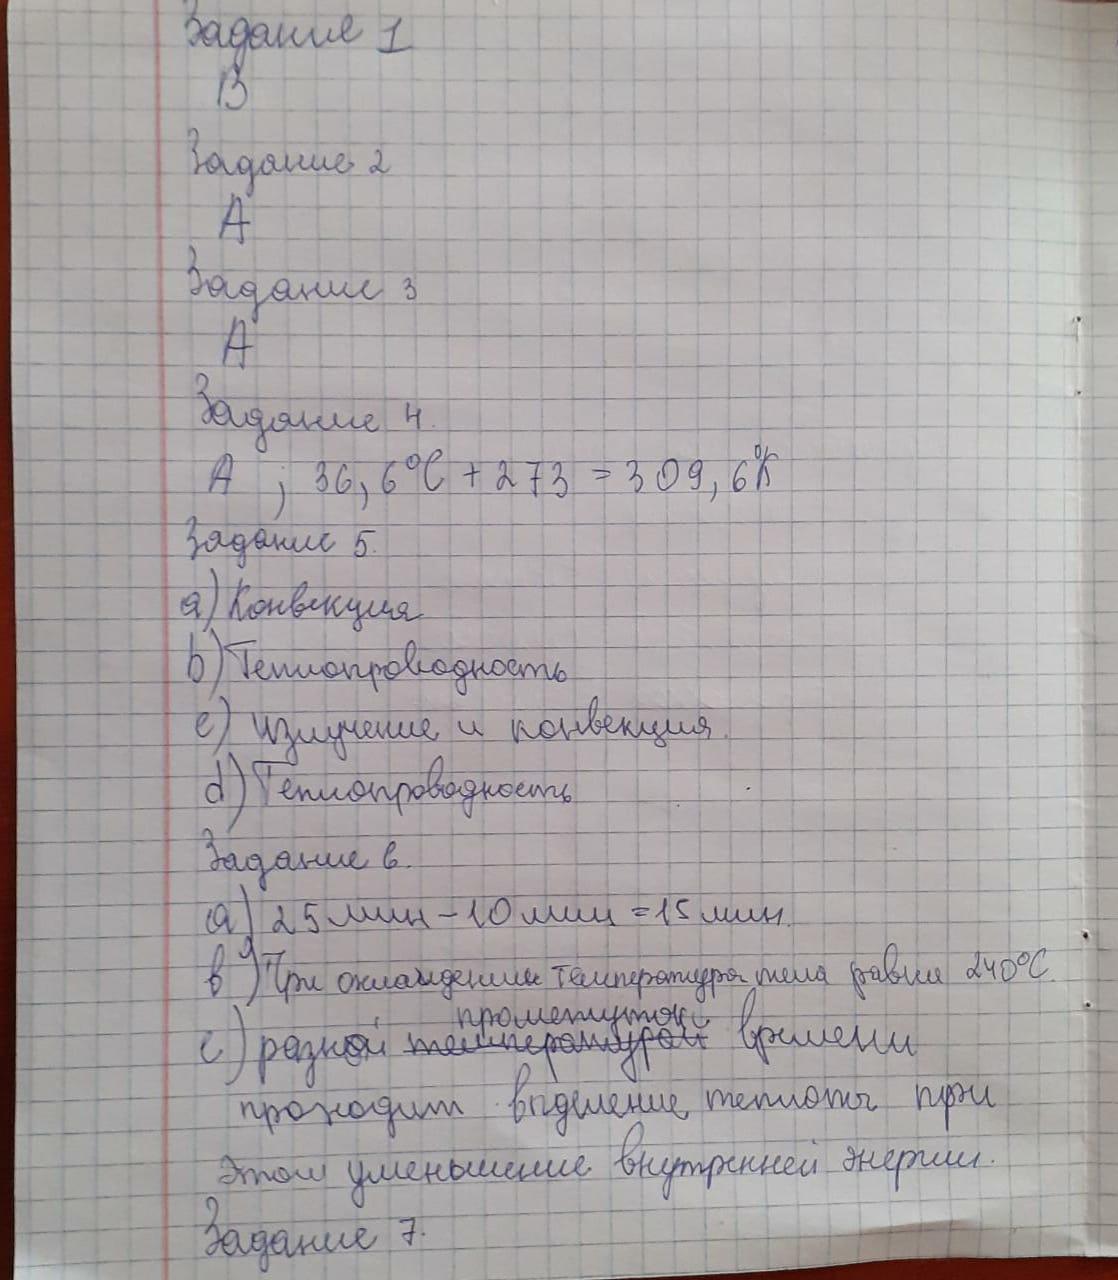 Задание 1
В
Задание 2
А
Задание 3
А
Задание 4.
А ; 36,6°C + 273 = 309,6°К
Задание 5.
а) Конвекция
b) Теплопроводность
c) излучение и конвекция.
d) Теплопроводность
Задание 6.
а) 25 мин - 10 мин = 15 мин.
в) При охлаждении температура тела равна 240°C.
промежуток
с) разной температурой времени
проходит выделение теплоты при
этом уменьшение внутренней энергии.
Задание 7.